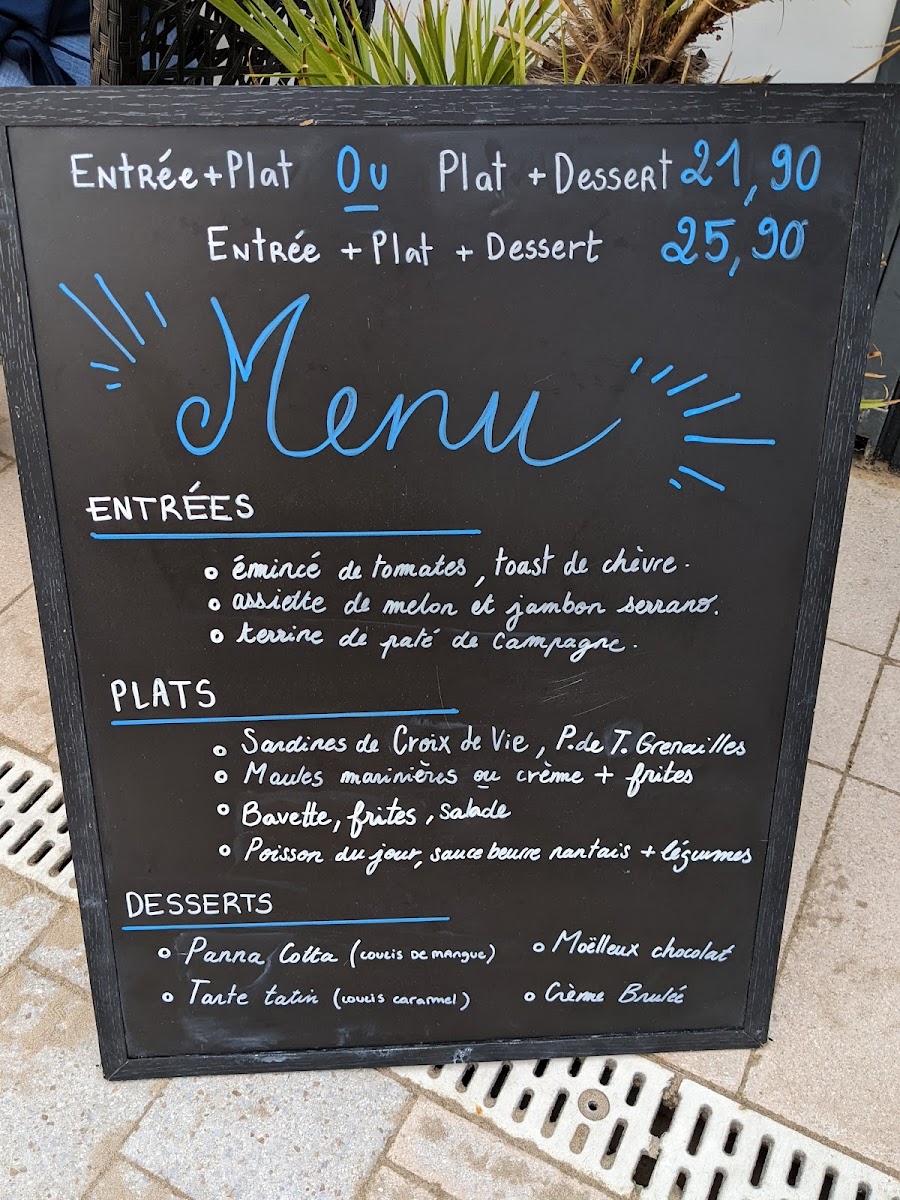 Entrée+Plat Ou Plat + Dessert 21,90
Entrée + Plat + Dessert 25,90
Menu
ENTRÉES
émincé de tomates, toast de chèvre.
assiette de melon et jambon serrano.
terrine de paté de Campagne.
PLATS
Sardines de Croix de Vie, P.de T. Grenailles
Moules marinières ou crème + frites
Bavette, frites, salade
Poisson du jour, sauce beurre nantais + légumes
DESSERTS
Panna Cotta (coulis de mangue) Moëlleux chocolat
Tarte tatin (coulis caramel) Crème Brulée